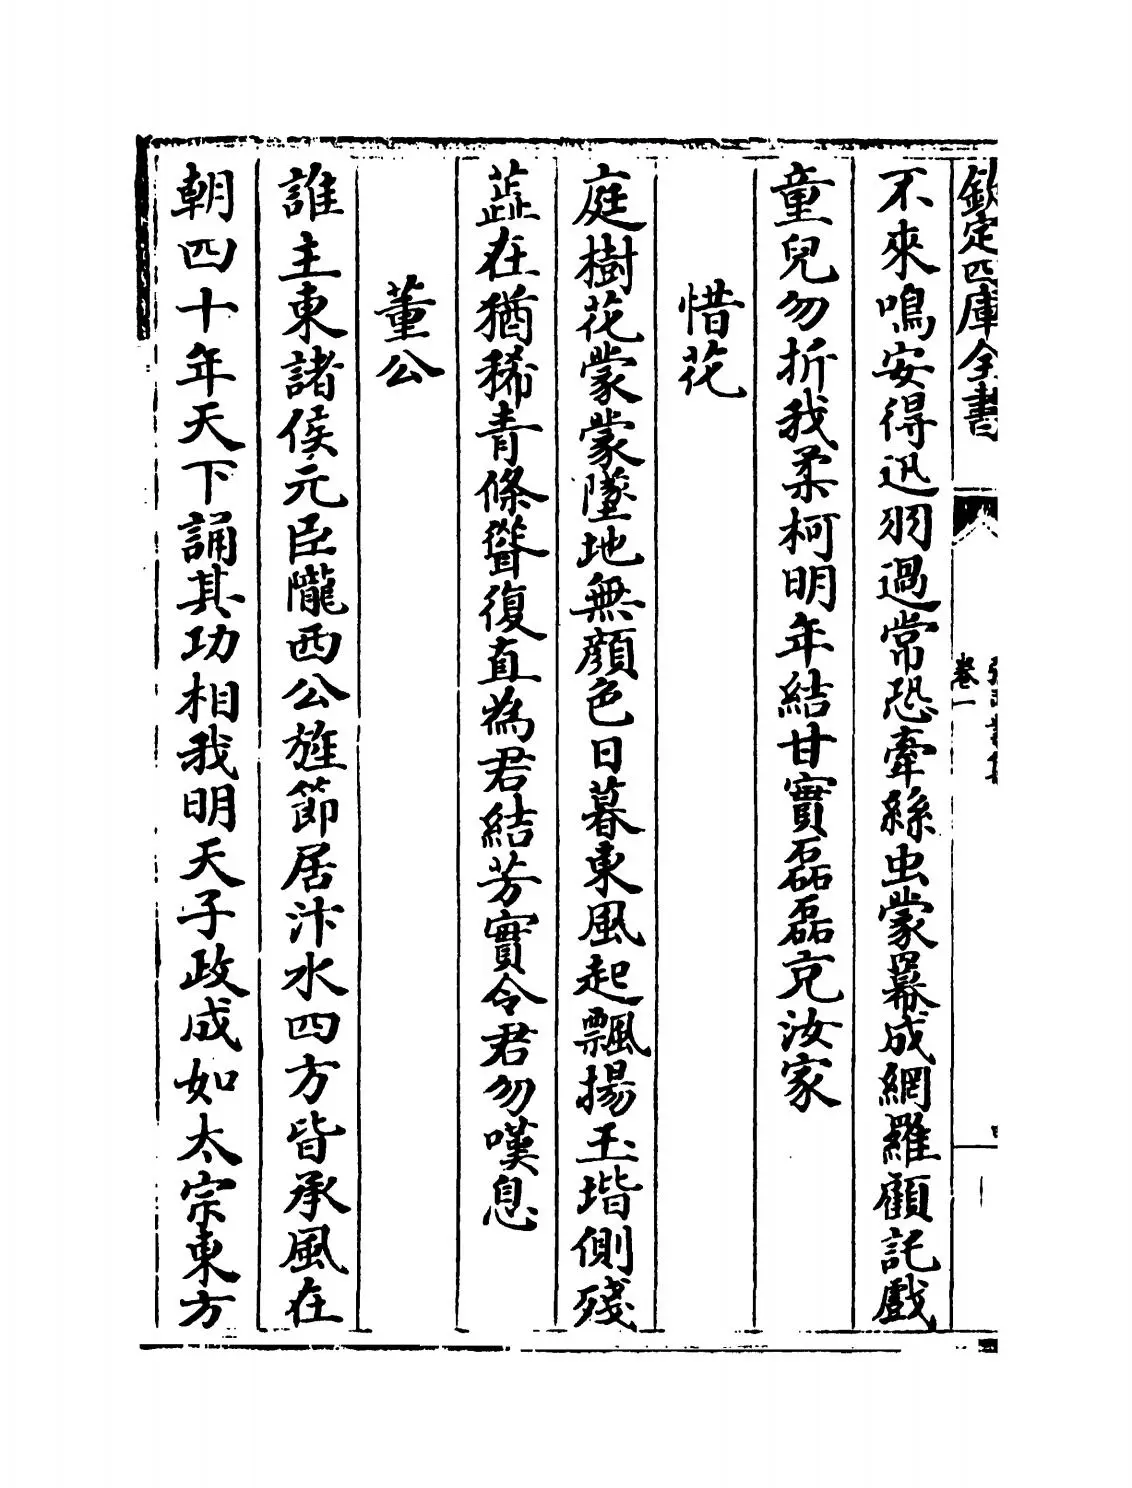 欽定四庫全書
卷一
不來鳴安得迅羽過常恐牽絲虫蒙冪成網羅顧託戲
童兒勿折我柔柯明年結甘實磊磊充汝家
惜花
庭樹花蒙蒙墜地無顔色日暮東風起飄揚玉堦側殘
蕋在猶稀青條聳復直為君結芳實令君勿嘆息
董公
誰主東諸侯元臣隴西公旌節居汴水四方皆承風在
朝四十年天下誦其功相我明天子政成如太宗東方